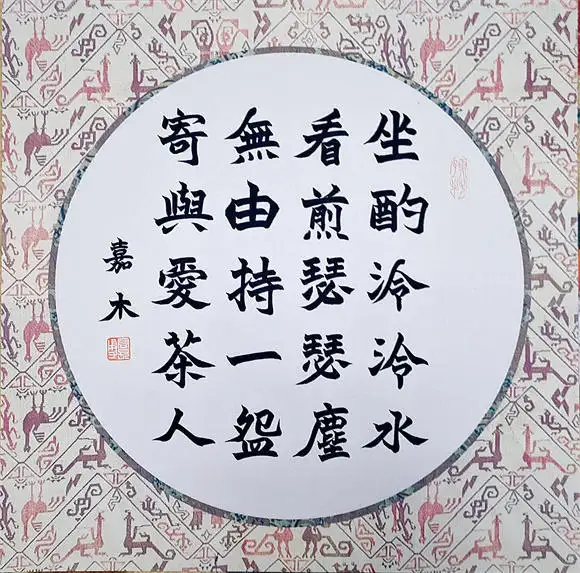 坐酌泠泠水
看煎瑟瑟塵
無由持一盌
寄與愛茶人
嘉木